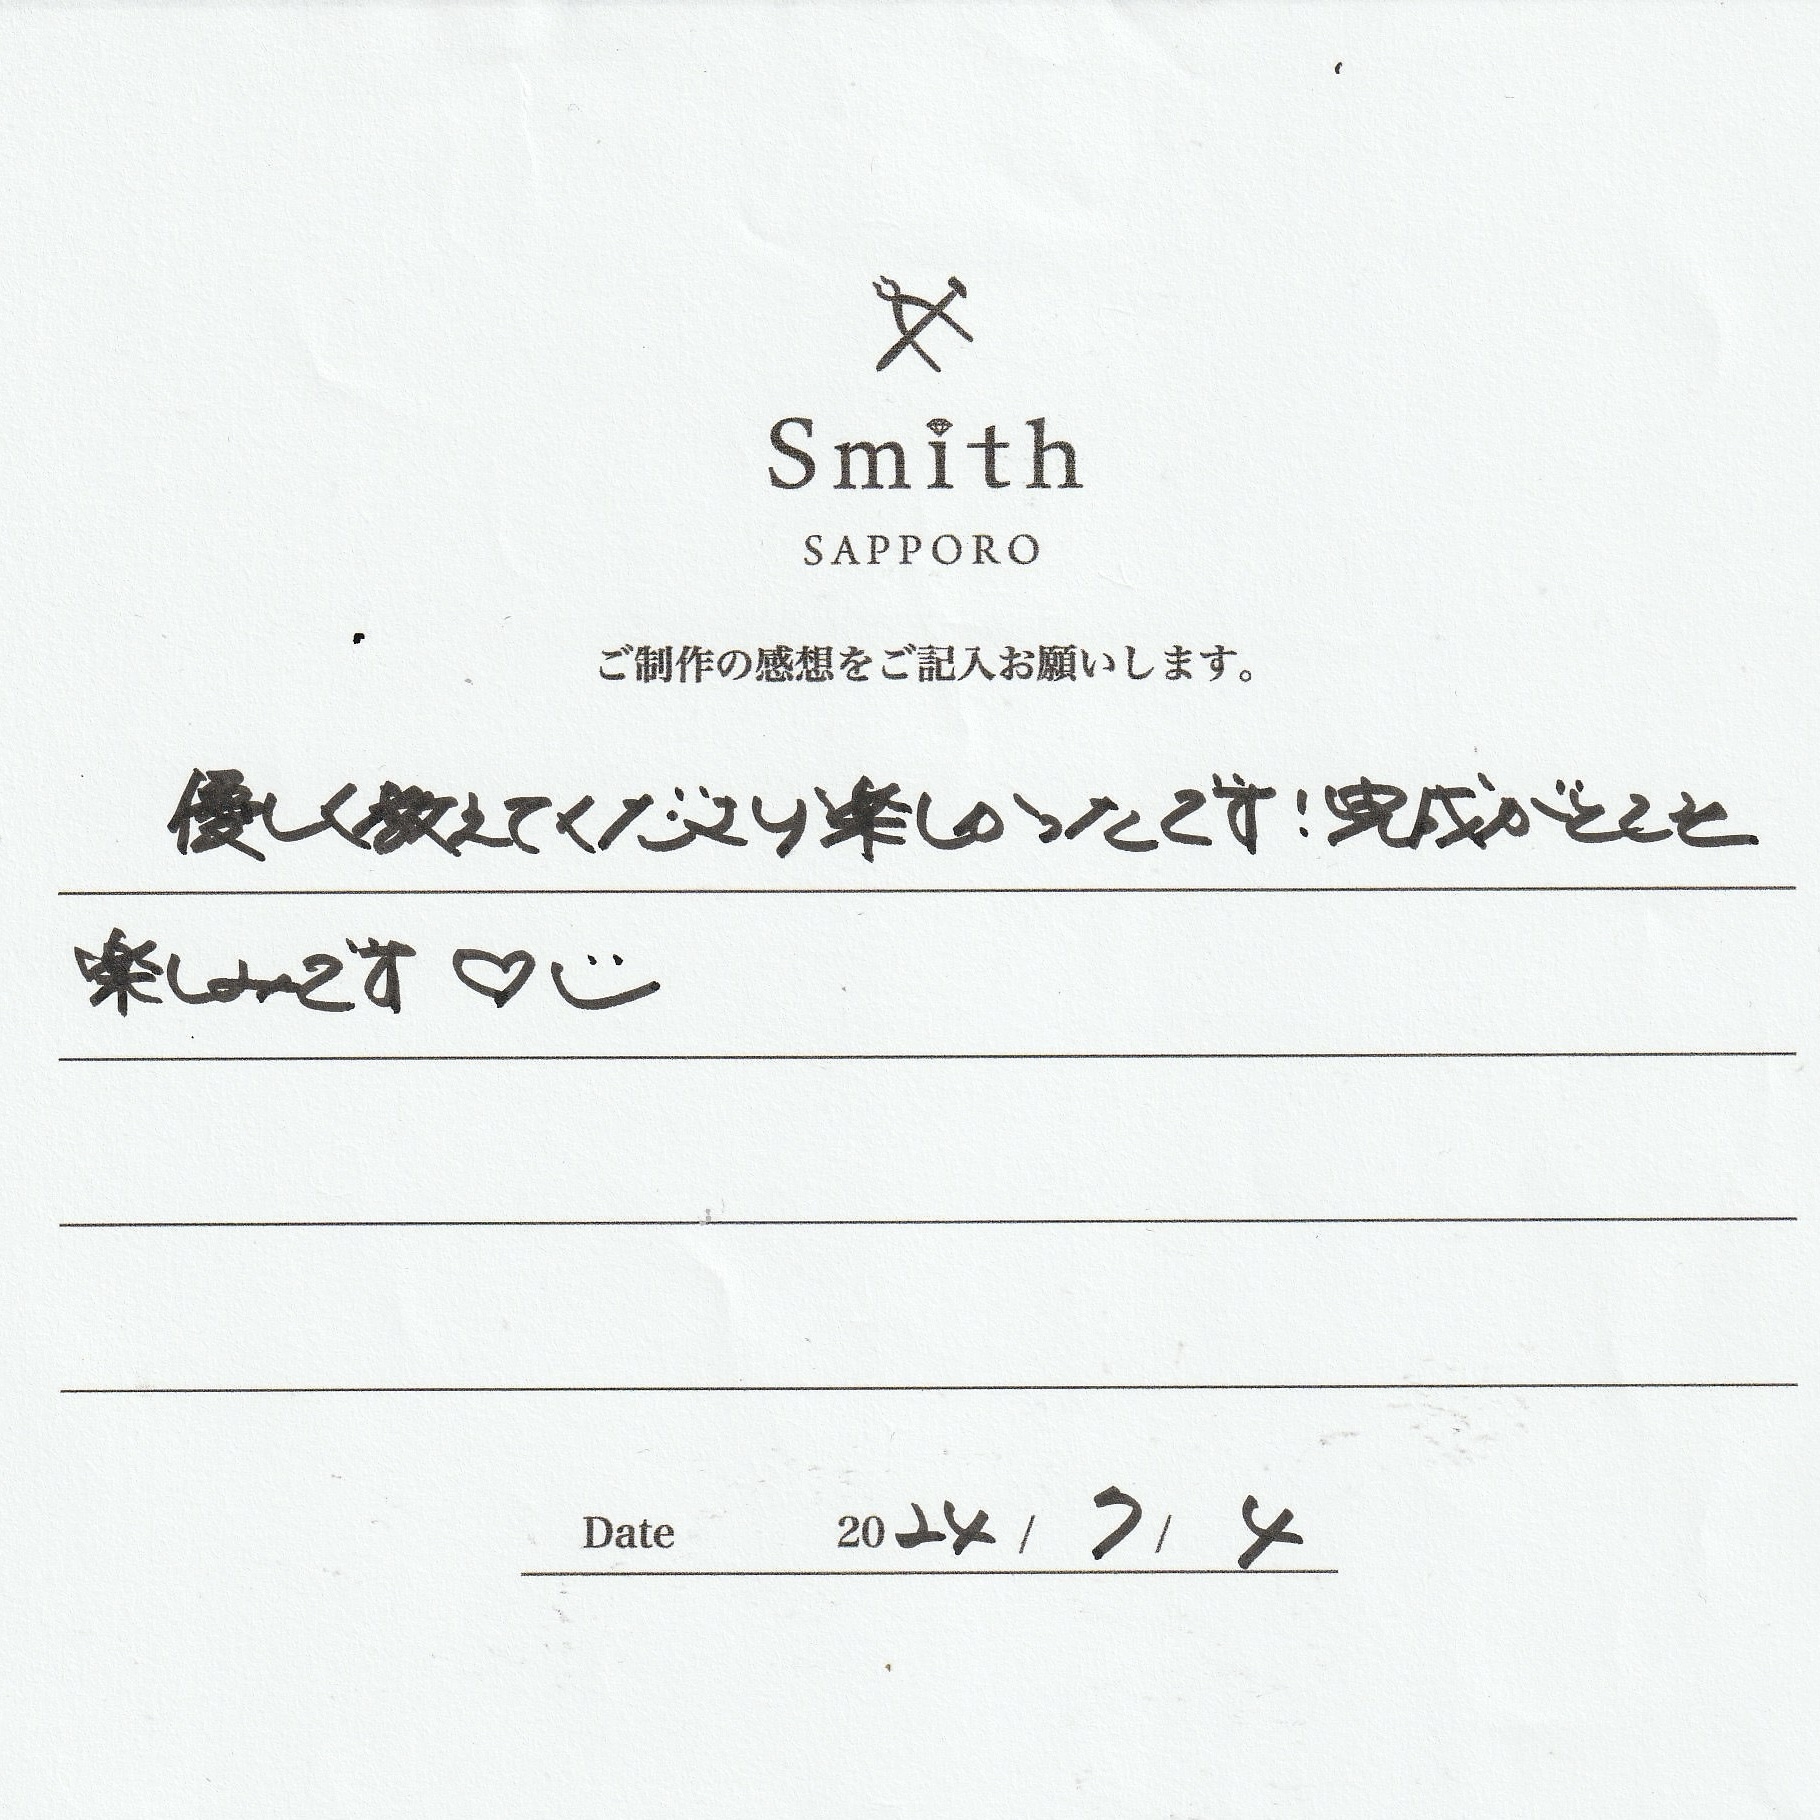 Smith
SAPPORO
ご制作の感想をご記入お願いします。
優しく教えてくださり楽しかったです！完成がとても
楽しみです♡
Date 2024 / 7 / 4